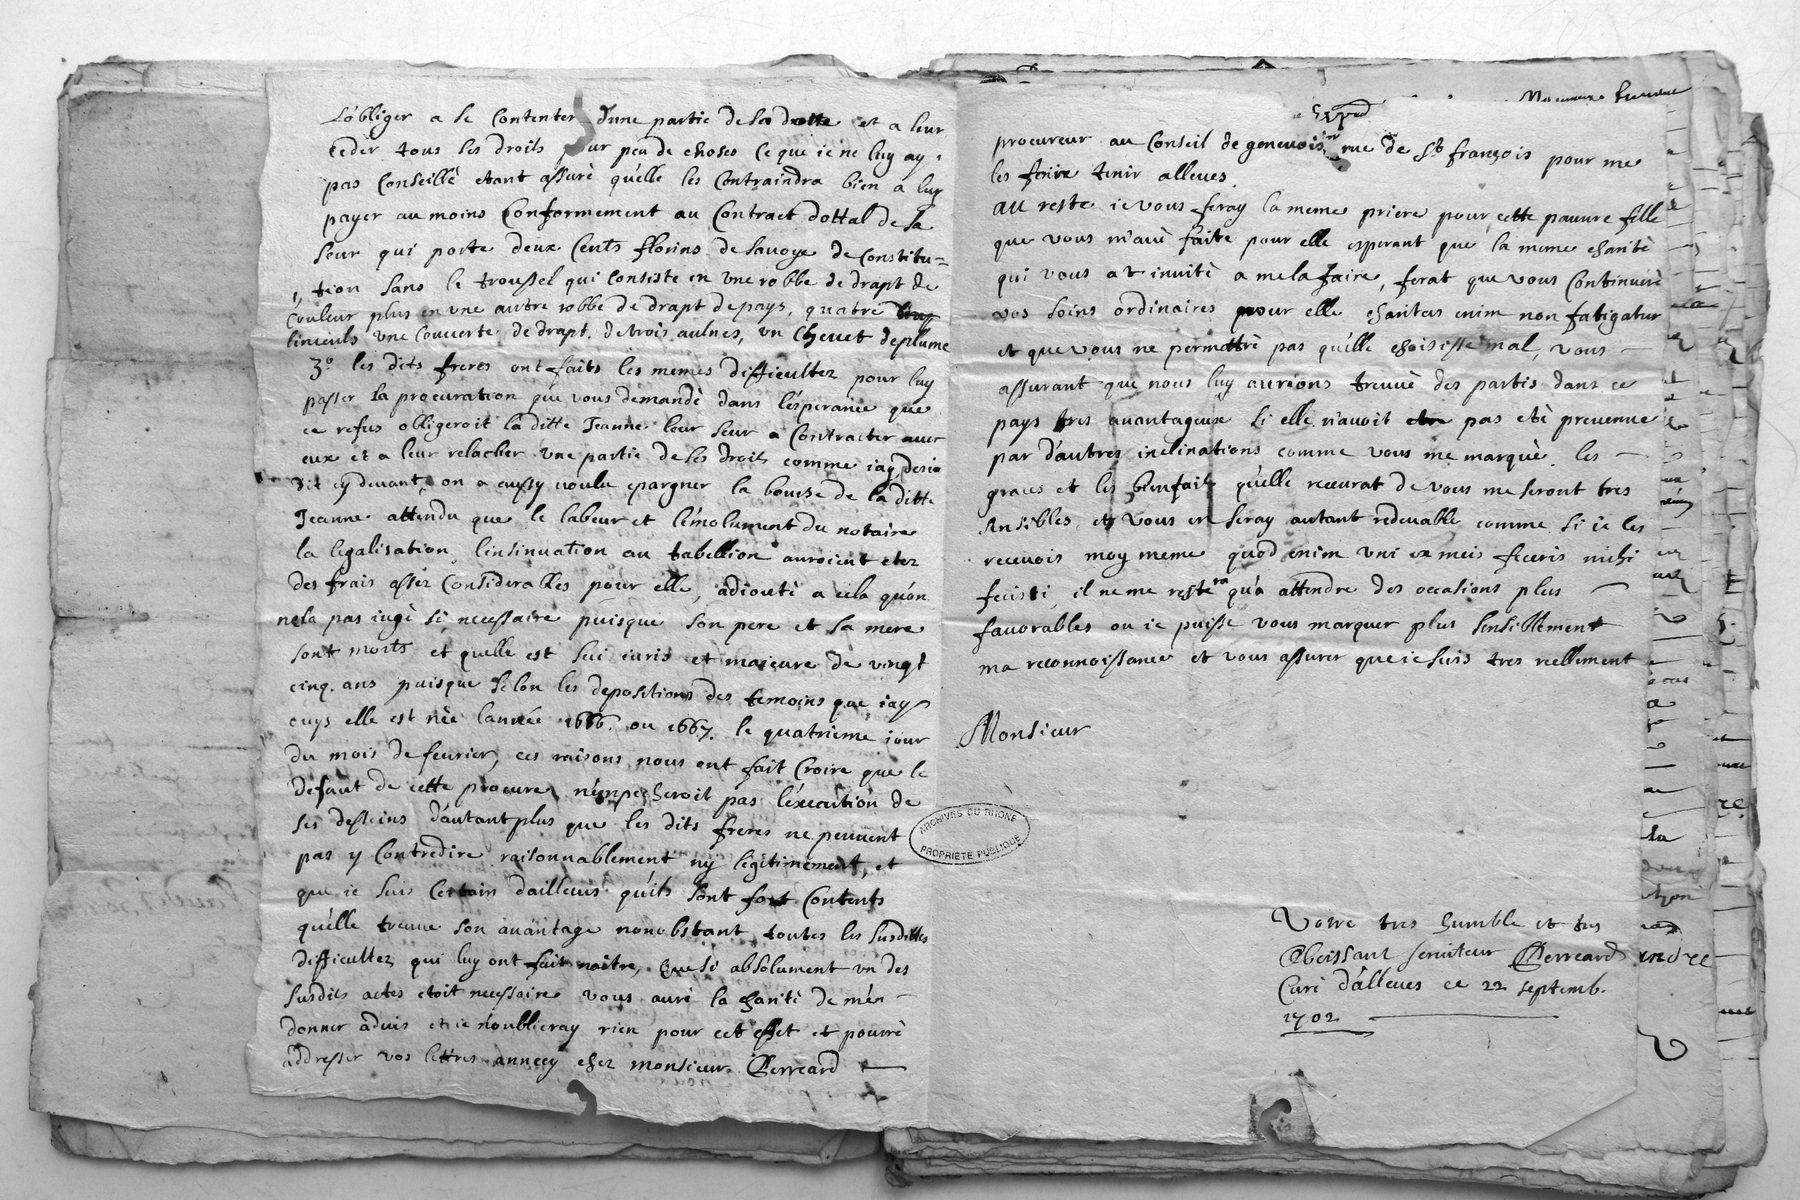 L'obliger a se Contenter d'une partie de sa dotte et a leur
Ceder tous ses droits pour peu de choses Ce que ie ne luy ay
pas Conseillé etant assuré qu'elle les Contraindra bien a luy
payer au moins Conformement au Contract dottal de sa
seur qui porte deux Cents florins de Savoye de Constitu=
tion sans le troussel qui Consiste en une robbe de drapt de
Couleur plus en une autre robbe de drapt de pays, quatre
linceuls une Couverte de drapt de trois aulnes, un Chevet de plume
3.º les dits freres ont faits les memes difficultez pour luy
passer la procuration que vous demandé dans l'esperance que
ce refus obligeroit la ditte Jeanne leur seur a Contracter avec
eux et a leur relacher une partie de ses droits comme iay desia
dit cy devant, on a aussy voulu epargner la bourse de la ditte
Jeanne attendu que le labeur et l'emolument du notaire
la legalisation, l'insinuation au tabellion auroient etez
des frais assez Considerables pour elle, adiouté a cela qu'on
ne la pas iugé si necessaire puisque son pere et sa mere
sont morts et quelle est sui iuris et maieure de vingt
cinq ans puisque selon les depositions des temoins que iay
ouys elle est née l'année 1666. ou 1667. le quatrieme iour
du mois de fevrier, ces raisons nous ont fait Croire que le
defaut de cette procure n'empecheroit pas l'execution de
ses desseins d'autant plus que les dits freres ne peuvent
pas y Contredire raisonnablement ny legitimement, et
que ie suis Certain dailleurs qu'ils sont fort Contents
qu'elle treuve son avantage nonobstant toutes les susdittes
difficultez qui luy ont fait naitre, Que si absolument un des
susdits actes etoit necessaire vous auré la charité de m'en
donner advis et ie n'oublieray rien pour cet effet et pourré
addresser vos lettres annecy chez monsieur Perreard
procureur au Conseil de genevois rue de St françois pour me
les faire tenir alleves.
au reste ie vous feray la meme priere pour cette pauvre fille
que vous m'avé faite pour elle esperant que la meme charité
qui vous at invité a me la faire, ferat que vous Continueré
vos soins ordinaires pour elle charitas enim non fatigatur
et que vous ne permettré pas qu'elle choisisse mal, vous
assurant que nous luy aurions treuvé des partis dans ce
pays tres avantageux si elle n'avoit pas eté prevenue
par d'autres inclinations comme vous me marqué. les
graces et les bienfaits qu'elle recevrat de vous me seront tres
sensibles et vous en seray autant redevable comme si ie les
recevois moy meme quod enim uni ex meis feceris mihi
fecisti, il ne me restera qu'a attendre des occasions plus
favorables ou ie puisse vous marquer plus sensiblement
ma reconnoissance et vous assurer que ie suis tres reellement
Monsieur
ARCHIVES DU RHONE
PROPRIETE PUBLIQUE
Votre tres humble et tres
Obeissant serviteur Perreard
Curé d'alleves ce 22 septemb.
1702